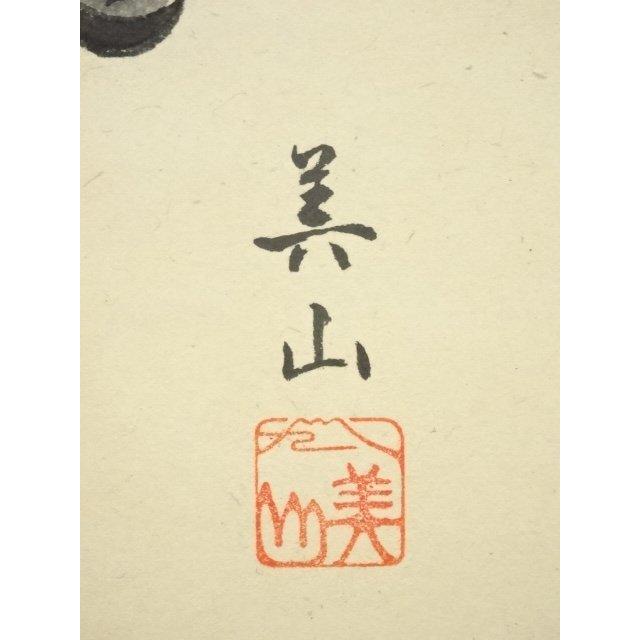 美山
美山